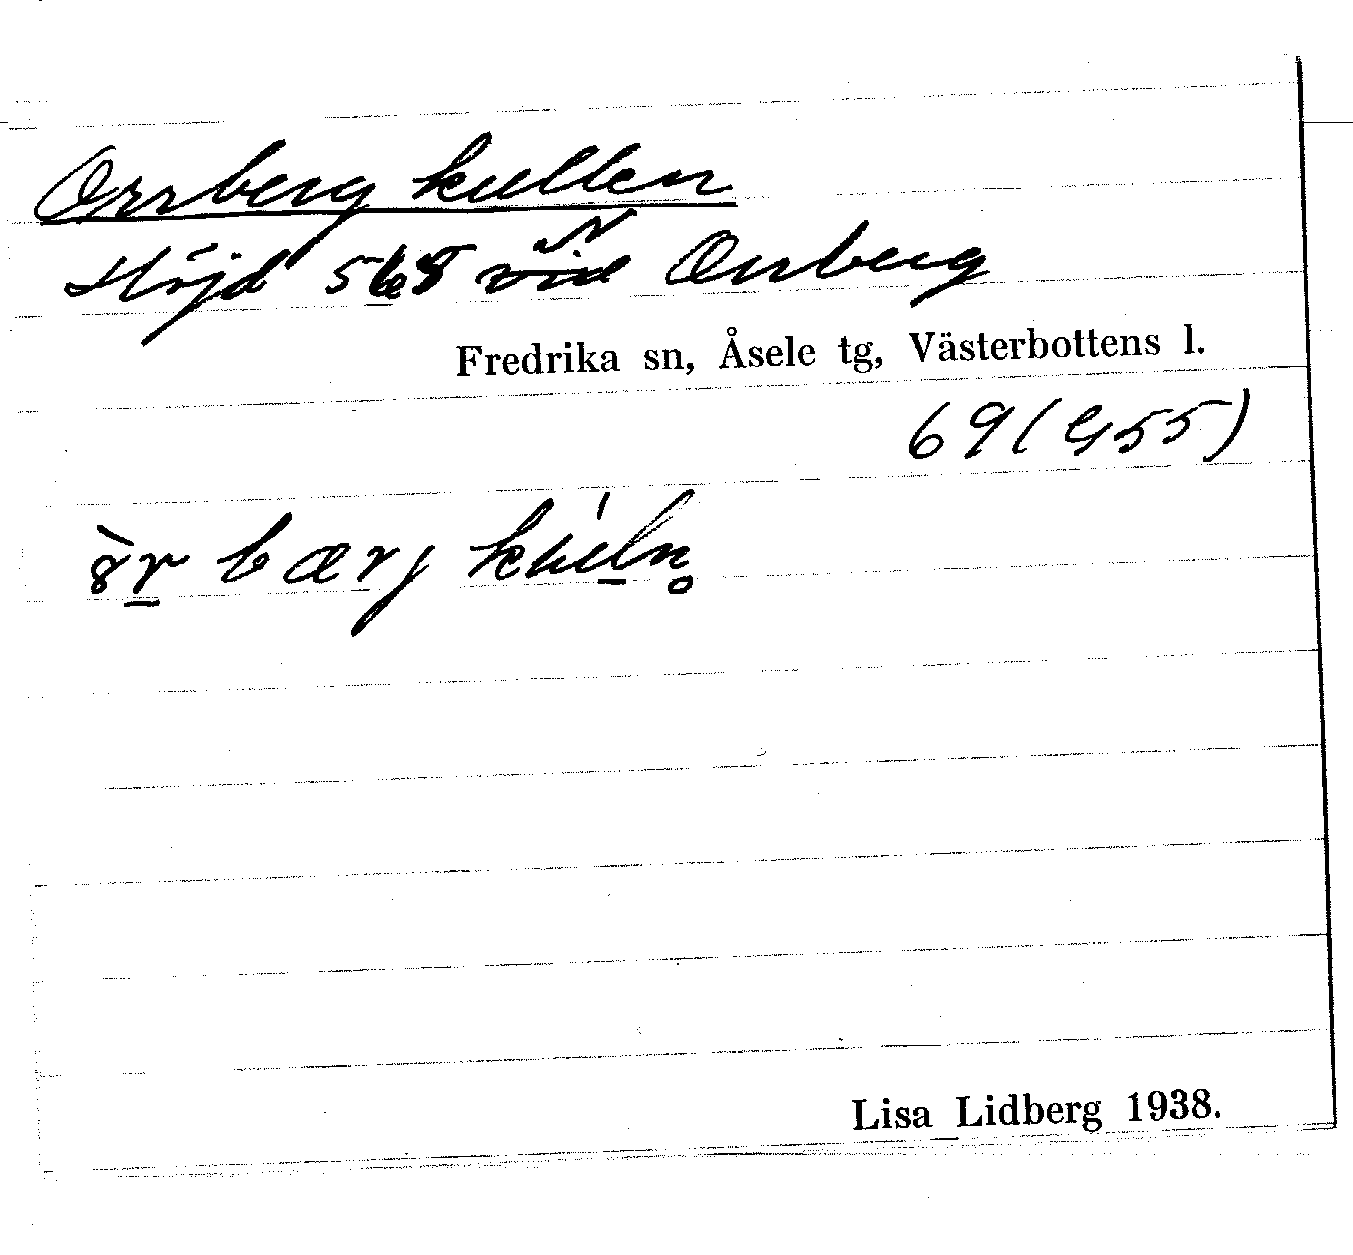 Orrberg kullen
Höjd 568 N vid Orrberg
Fredrika sn, Åsele tg, Västerbottens l.
69 (G55)
bærj
Lisa Lidberg 1938.